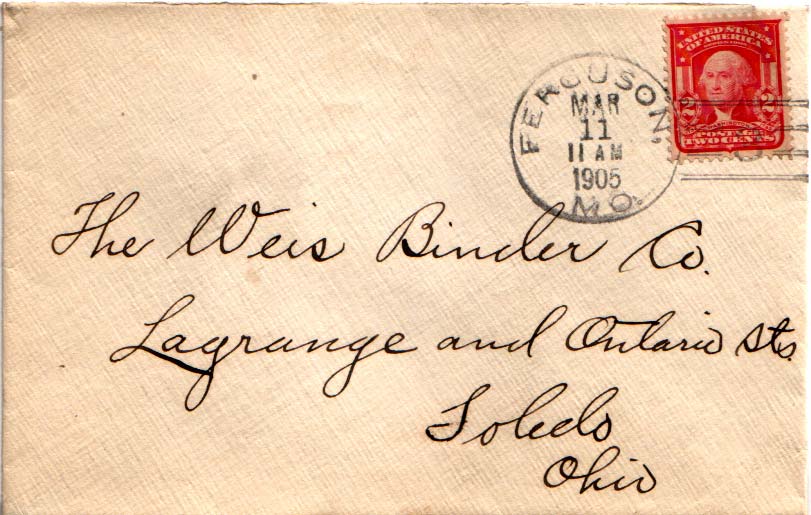 UNITED STATES
OF AMERICA
2 2
POSTAGE
TWO CENTS
FERGUSON,
MAR
11
11 AM
1905
MO.
The Weis Binder Co.
Lagrange and Ontario Sts.
Toledo
Ohio